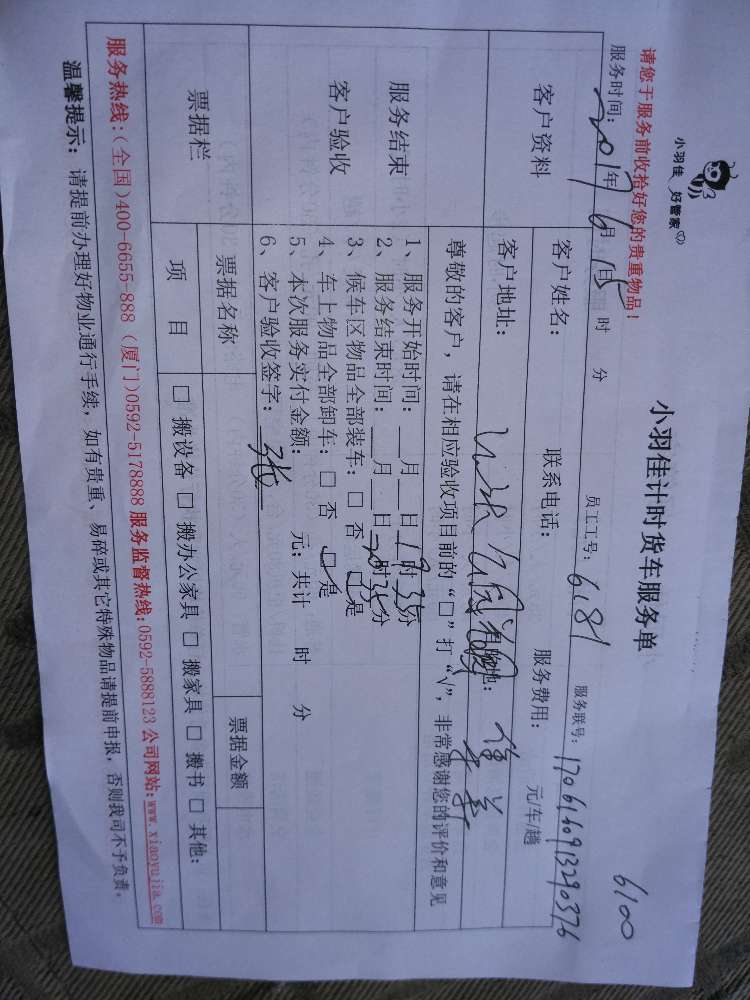 小羽佳 好管家
小羽佳计时货车服务单
6100
请您于服务前收拾好您的贵重物品！
服务时间: 2017年6月15 时 分 员工工号: 6181 服务联号: 1706160913290376
客户资料
客户姓名: 联系电话: 服务费用: 元/车/趟
客户地址:
服务结束
客户验收
尊敬的客户，请在相应验收项目前的“□”打“√”，非常感谢您的评价和意见
1、服务开始时间: 月 日 19时35分
2、服务结束时间: 月 日 20时35分
3、候车区物品全部装车: □ 否 □ 是
4、车上物品全部卸车: □ 否 □ 是
5、本次服务实付金额: 元; 共计 时 分
6、客户验收签字:
票据栏
票据名称 票据金额
项 目 □ 搬设备 □ 搬办公家具 □ 搬家具 □ 搬书 □ 其他:
服务热线:(全国)400-6655-888 (厦门)0592-5178888 服务监督热线:0592-5888123 公司网站:www.xiaoyujia.com
温馨提示: 请提前办理好物业通行手续，如有贵重、易碎或其它特殊物品请提前申报，否则我司不予负责。